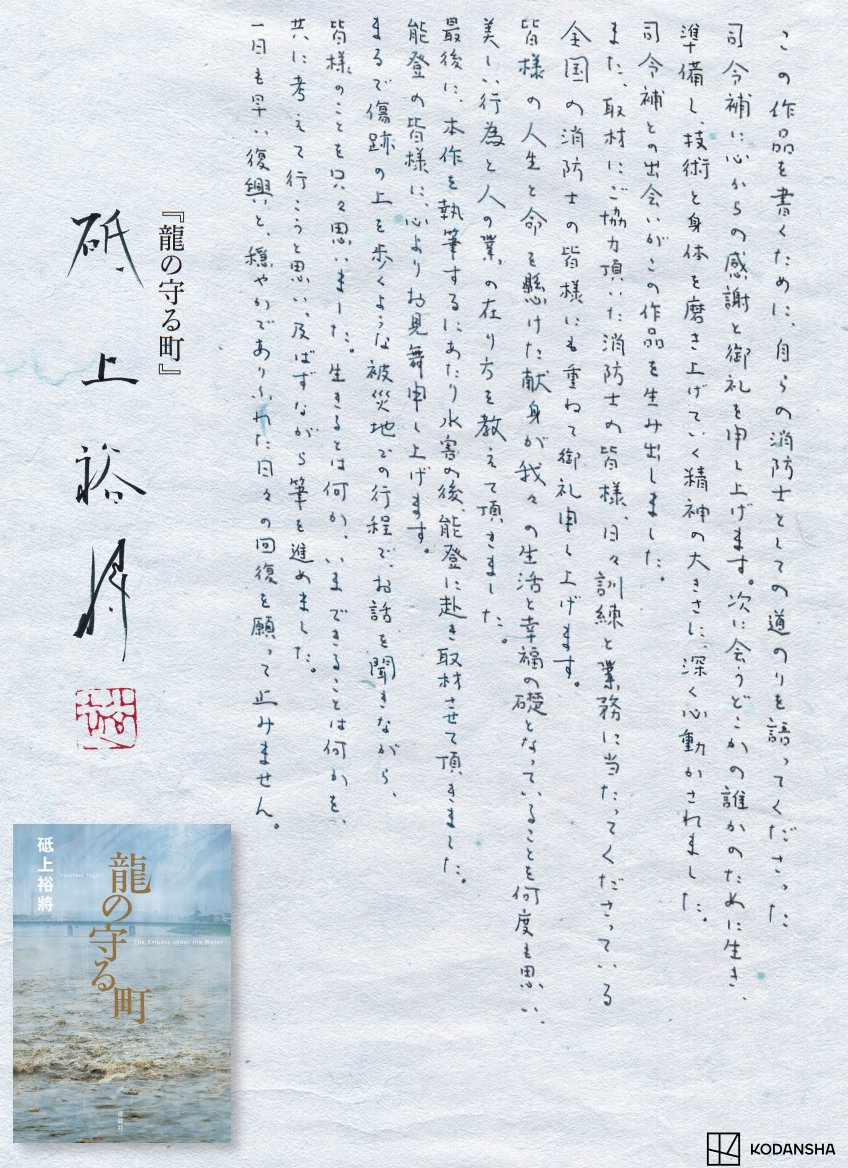 この作品を書くために、自らの消防士としての道のりを語ってくださった
司令補に心からの感謝と御礼を申し上げます。次に会うどこかの誰かのために生き、
準備し、技術と身体を磨き上げていく精神の大きさに、深く心動かされました。
司令補との出会いがこの作品を生み出しました。
また、取材にご協力頂いた消防士の皆様、日々訓練と業務に当たってくださっている
全国の消防士の皆様にも重ねて御礼申し上げます。
皆様の人生と命を懸けた献身が我々の生活と幸福の礎となっていることを何度も思い、
美しい行為と人の業の在り方を教えて頂きました。
最後に、本作を執筆するにあたり水害の後、能登に赴き取材させて頂きました。
能登の皆様に、心よりお見舞申し上げます。
まるで傷跡の上を歩くような被災地での行程で、お話を聞きながら、
皆様のことを只々思いました。生きるとは何か、いまできることは何かを、
共に考えて行こうと思い、及ばずながら筆を進めました。
一日も早い復興と、穏やかでありふれた日々の回復を願って止みません。
『龍の守る町』
砥上裕將
砥上裕將
Hiromasa Togami
龍の守る町
The Embers under the Water
講談社
KODANSHA